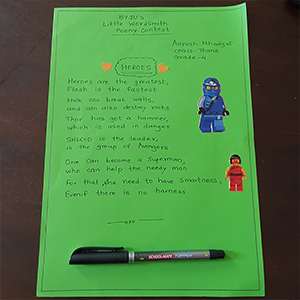 BYJU's
Little Wordsmith
Poetry Contest
Aayush Mhadgut
Thane
Grade-4
HEROES
Heroes are the greatest,
Flash is the fastest
Hulk can break walls,
and can also destroy rocks
Thor has got a hammer,
which is used in danger
SHIELD is the leader,
in the group of Avengers
One can become a Superman,
who can help the needy man
For that, We need to have Smartness,
Evenif there is no harness.